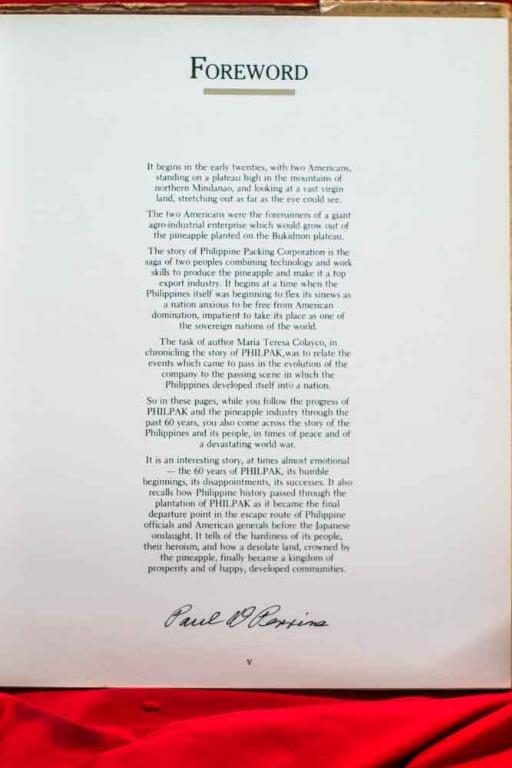 FOREWORD
It begins in the early twenties, with two Americans,
standing on a plateau high in the mountains of
northern Mindanao, and looking at a vast virgin
land, stretching out as far as the eye could see.
The two Americans were the forerunners of a giant
agro-industrial enterprise which would grow out of
the pineapple planted on the Bukidnon plateau.
The story of Philippine Packing Corporation is the
saga of two peoples combining technology and work
skills to produce the pineapple and make it a top
export industry. It begins at a time when the
Philippines itself was beginning to flex its sinews as
a nation anxious to be free from American
domination, impatient to take its place as one of
the sovereign nations of the world.
The task of author Maria Teresa Colayco, in
chronicling the story of PHILPAK,was to relate the
events which came to pass in the evolution of the
company to the passing scene in which the
Philippines developed itself into a nation.
So in these pages, while you follow the progress of
PHILPAK and the pineapple industry through the
past 60 years, you also come across the story of the
Philippines and its people, in times of peace and of
a devastating world war.
It is an interesting story, at times almost emotional
— the 60 years of PHILPAK, its humble
beginnings, its disappointments, its successes. It also
recalls how Philippine history passed through the
plantation of PHILPAK as it became the final
departure point in the escape route of Philippine
officials and American generals before the Japanese
onslaught. It tells of the hardiness of its people,
their heroism, and how a desolate land, crowned by
the pineapple, finally became a kingdom of
prosperity and of happy, developed communities.
Paul D Perrine
v